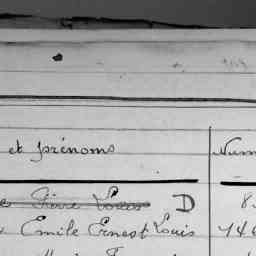 et prénoms Num
Pierre Louis D 8
Emile Ernest Louis 146